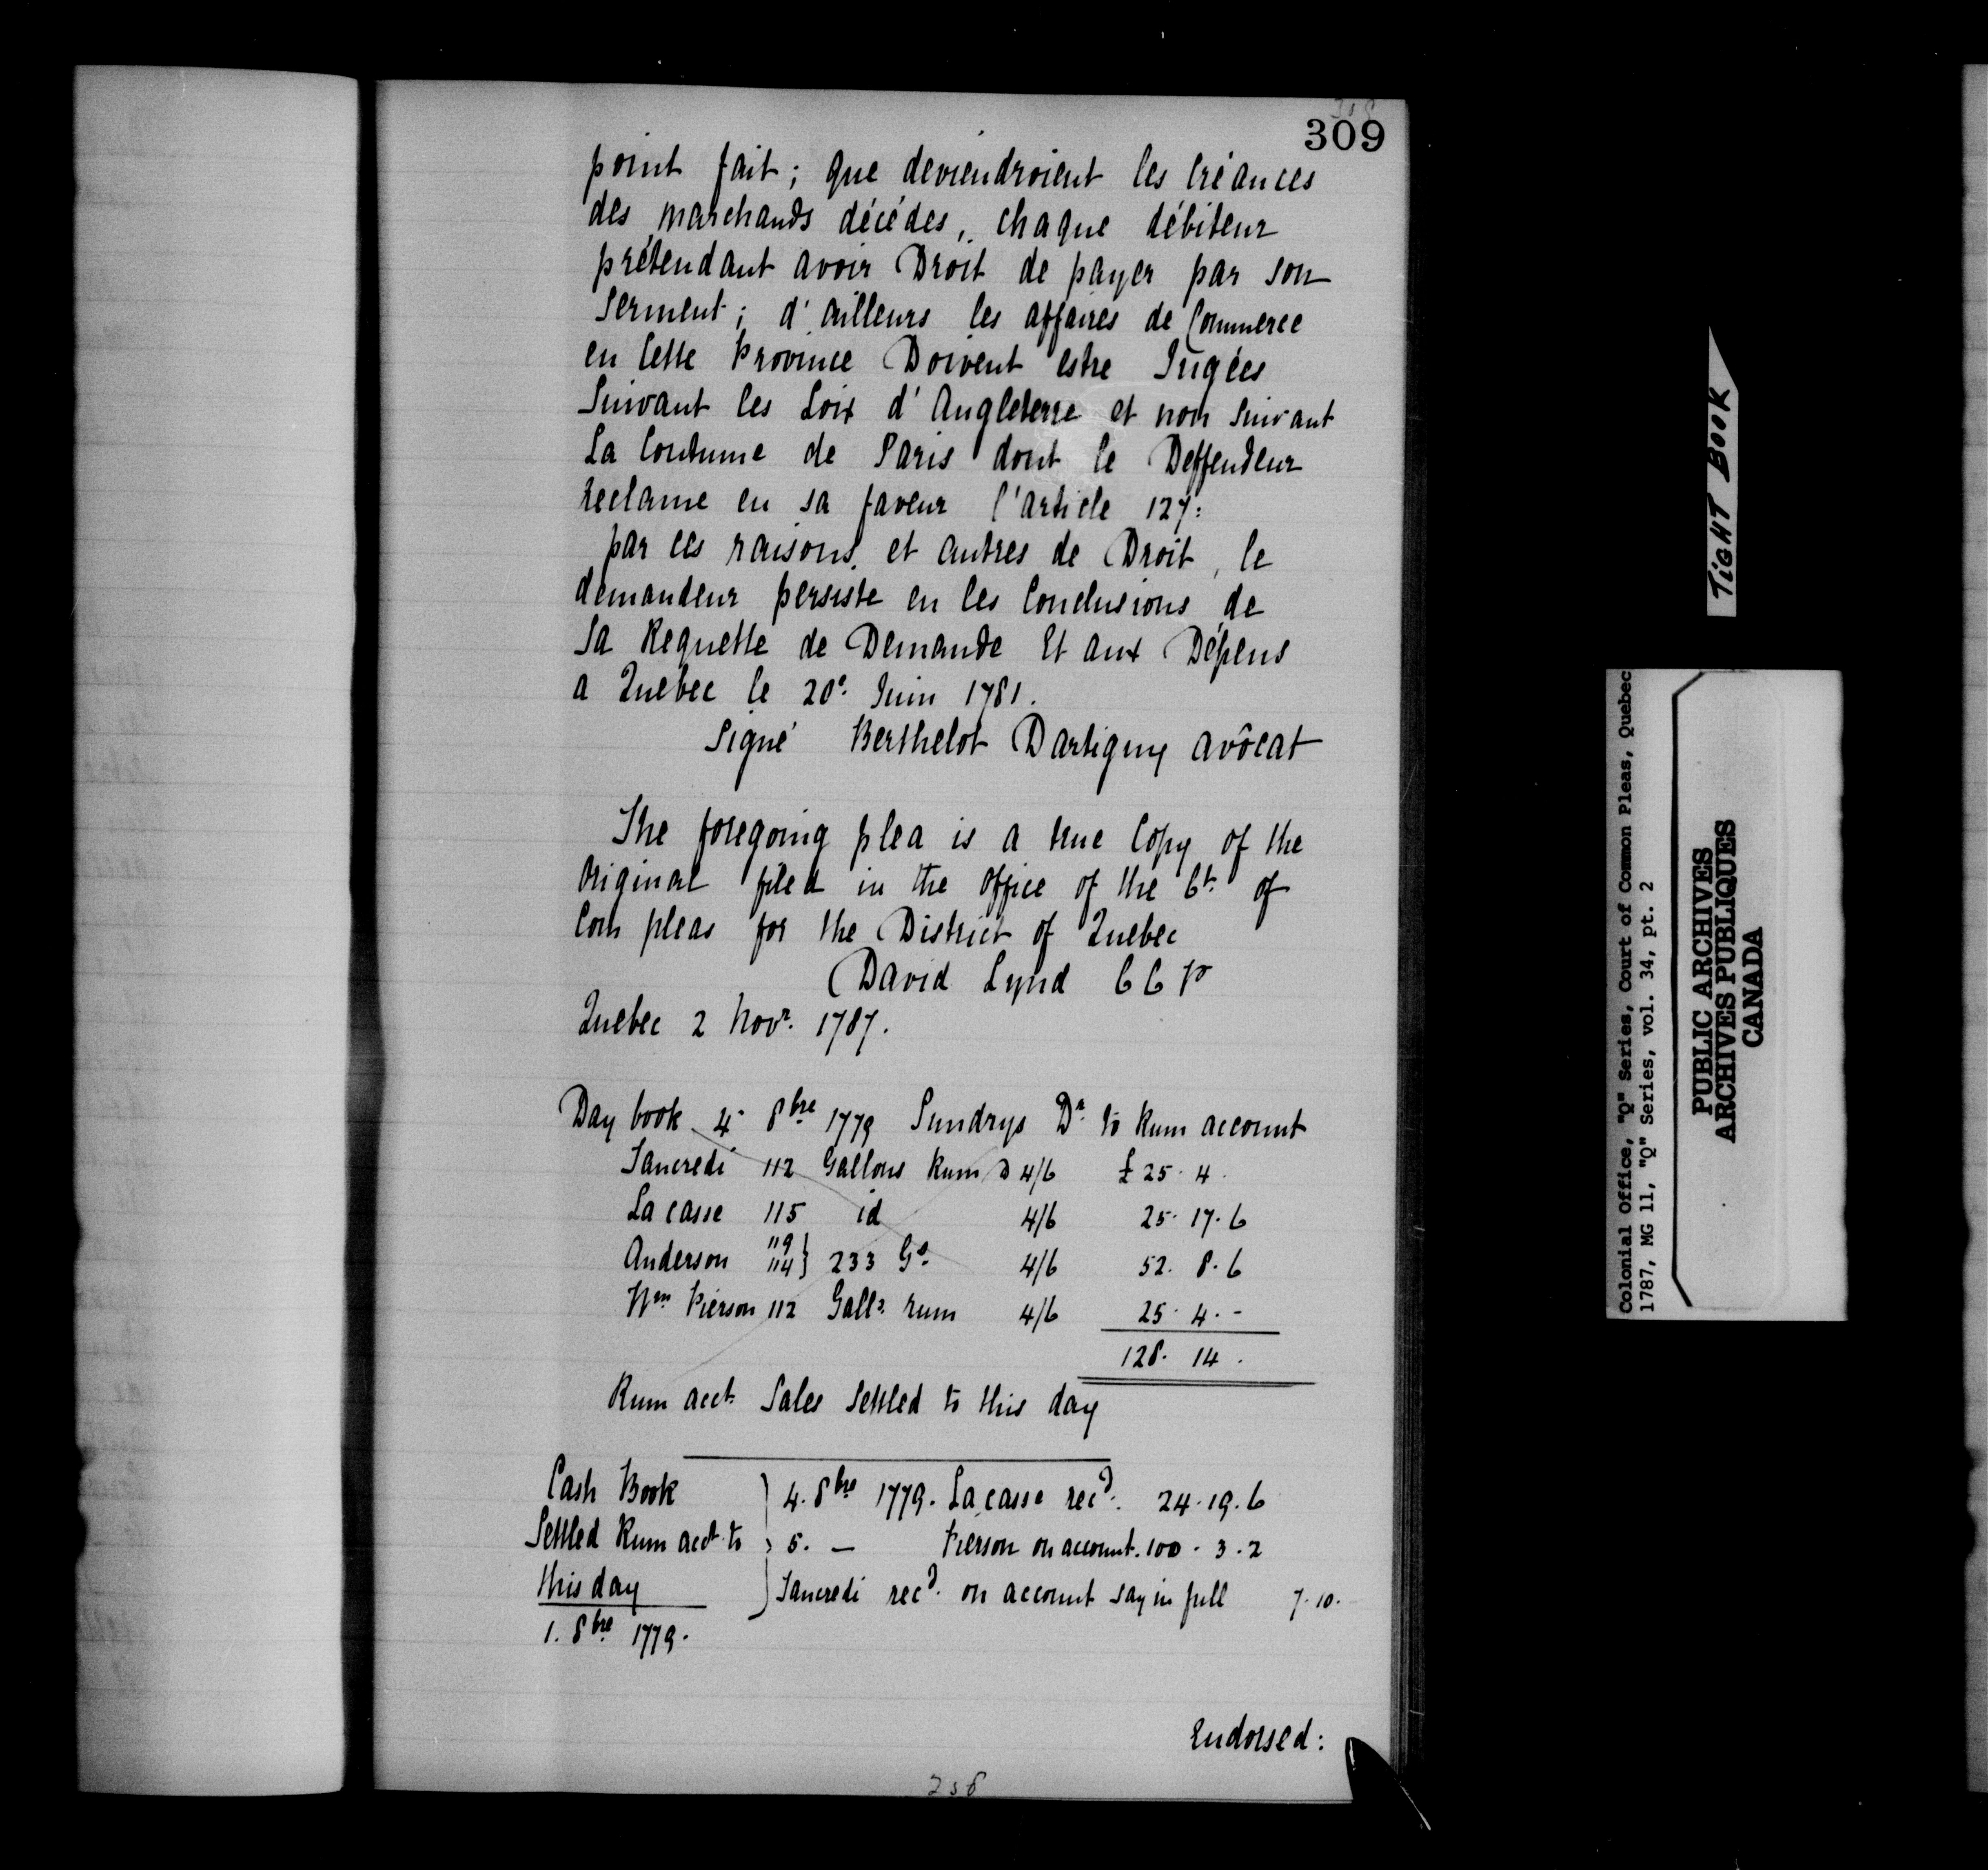 309
point fait; que deviendroient les Créances
des marchands décédes, chaque débiteur
prétendant avoir Droit de payer par son
Serment; d'ailleurs les affaires de Commerce
en Cette Province Doivent estre Jugées
Suivant les Loix d'Angleterre et non Suivant
La Coutume de Paris dont le Deffendeur
reclame en sa faveur l'article 127:
par ces raisons, et autres de Droit, le
demandeur persiste en les Conclusions de
Sa Requette de Demande Et aux Dépens
a Quebec le 20e. Juin 1781.
Signé Berthelot Dartigny avôcat
The foregoing plea is a true Copy of the
Original filed in the office of the Ct. of
Com pleas for the District of Quebec
David Lynd C C P
Quebec 2 Novr. 1787.
Day book 4 8bre 1779 Sundrys Dr. to Rum account
Tancredi 112 Gallons Rum @ 4/6 £ 25. 4.
La casse 115 id 4/6 25. 17. 6
Anderson 119 114 } 233 Gs. 4/6 52. 8. 6
Wm Pierson 112 Galls. rum 4/6 25. 4. -
128. 14.
Rum acct. Sales Settled to this day
Cash Book } 4. 8bre 1779. La casse recd. 24. 19. 6
Settled Rum acct. to } 5. — Pierson on account. 100. 3. 2
this day } Tancredi recd. on account say in full 7. 10.
1. 8bre 1779.
Endorsed:
258
TIGHT BOOK
Colonial Office, "Q" Series, Court of Common Pleas, Quebec
1787, MG 11, "Q" Series, vol. 34, pt. 2
PUBLIC ARCHIVES
ARCHIVES PUBLIQUES
CANADA